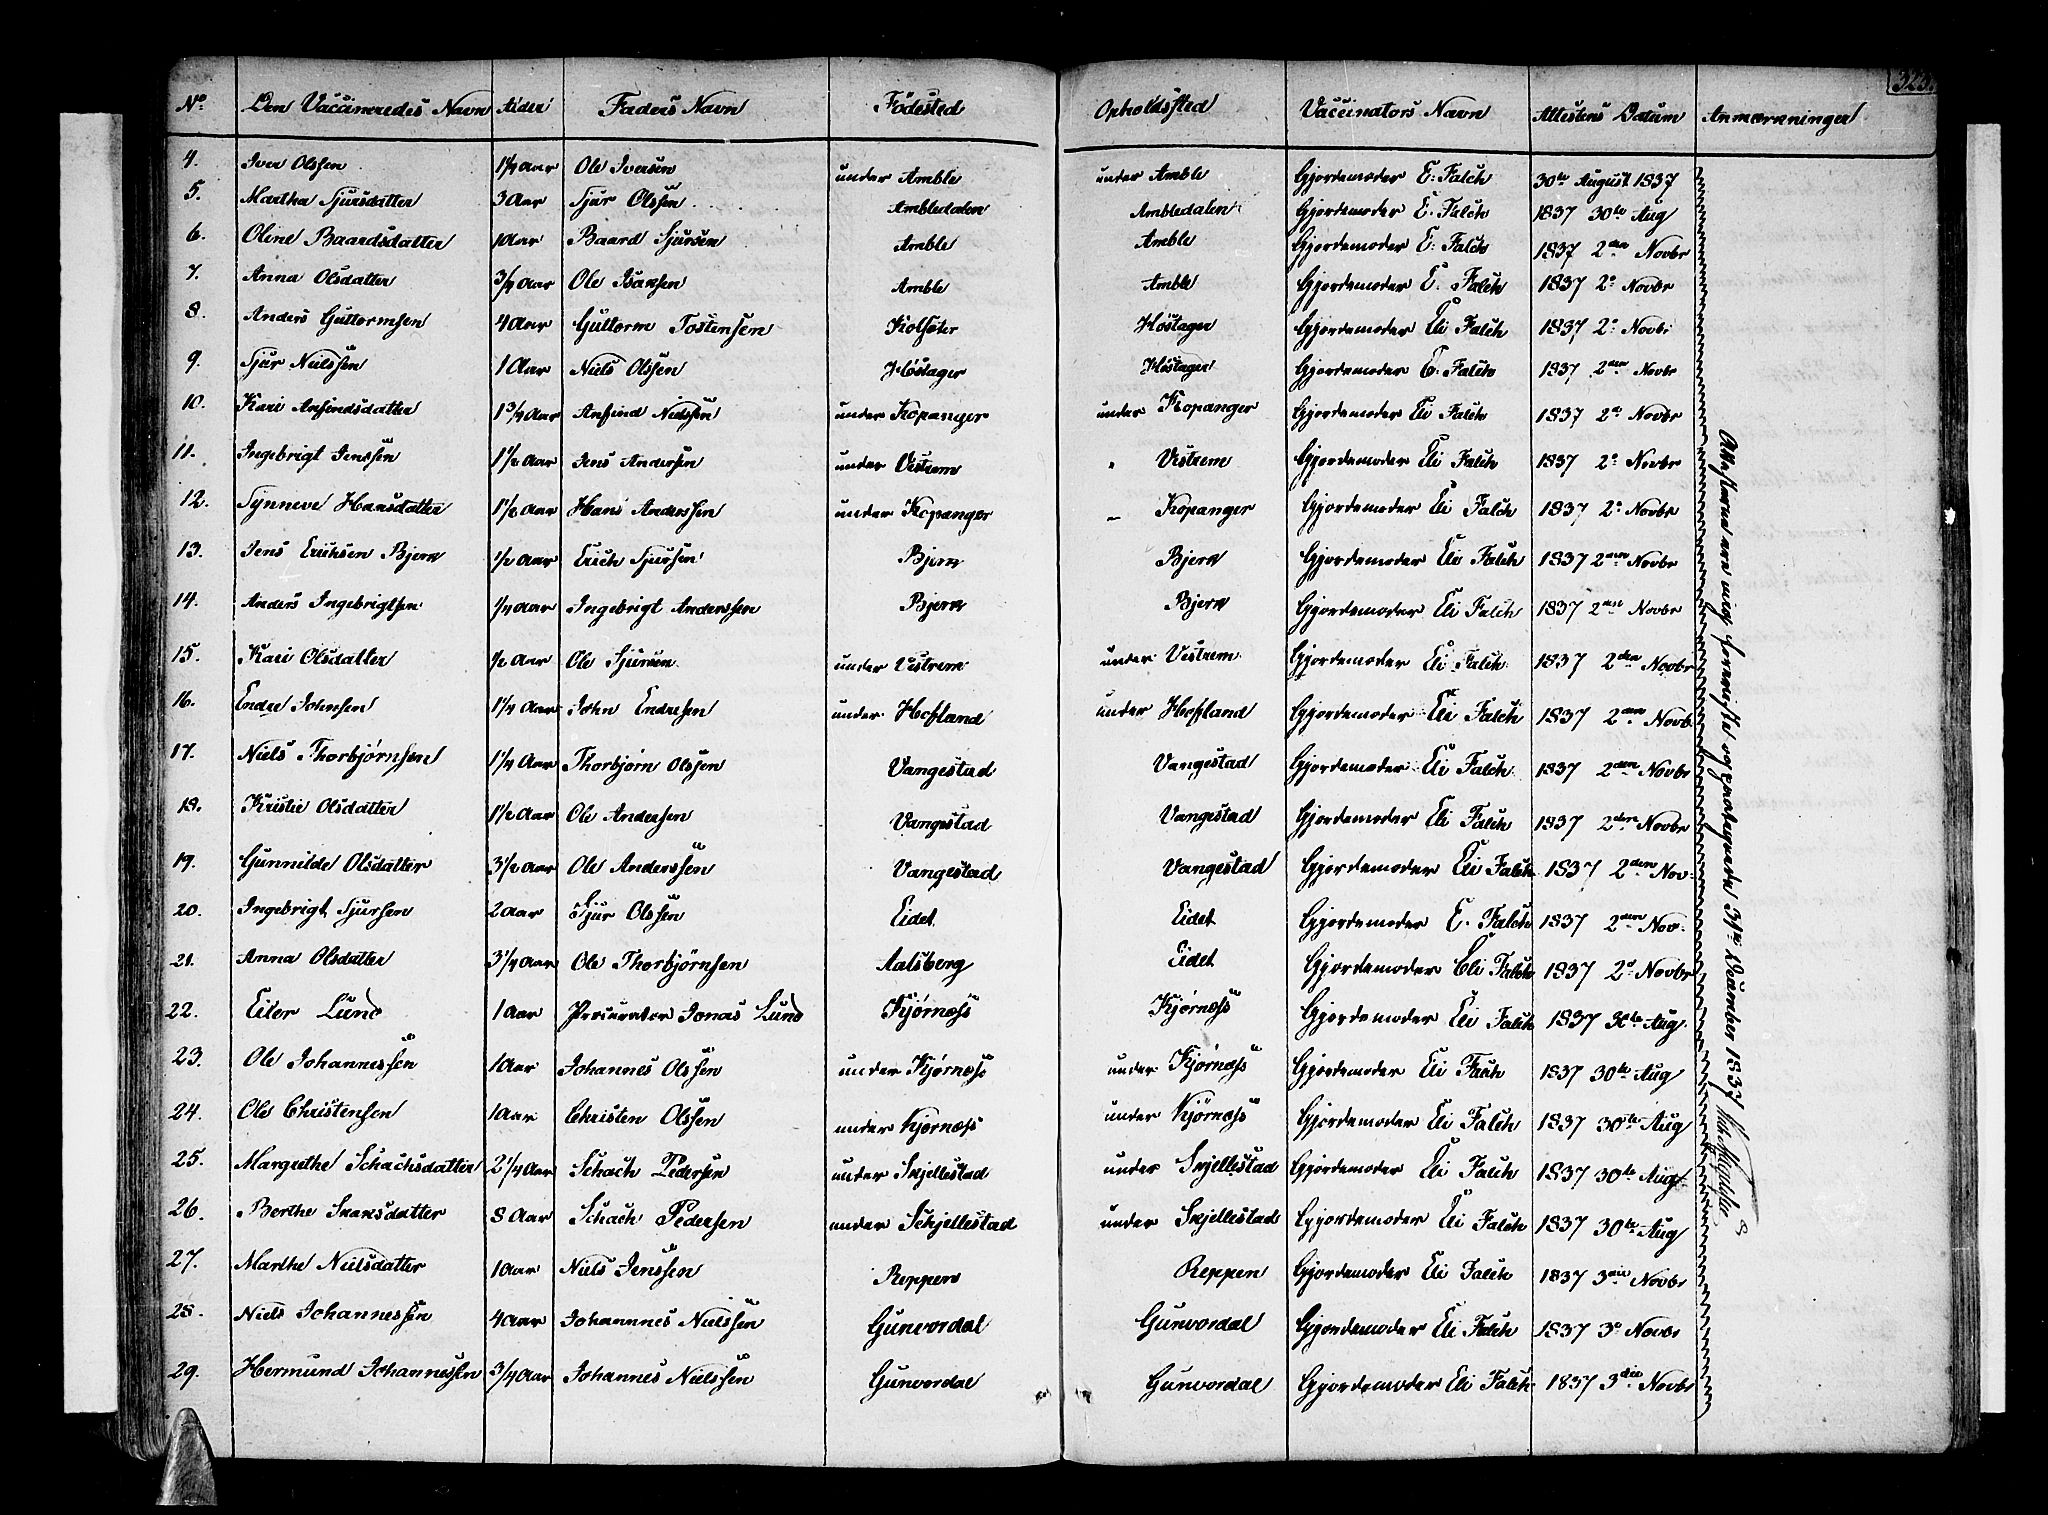 323.
No. Den Vaccineredes Navn Alder Faders Navn Fødested Opholdssted Vaccinators Navn Attestens Datum Anmærkninger
4. Iver Olssen 1 1/4 Aar Ole Iversen under Amble under Amble Gjordemoder E: Falch 30te August 1837
5. Martha Sjursdatter 3 Aar Sjur Olssen Ambledalen Ambledalen Gjordemoder E. Falch 1837 30te Aug
6. Oline Baardsdatter 1 Aar Baard Sjursen Amble Amble Gjordemoder E: Falch 1837 2den Novbr
7. Anna Olsdatter 3/4 Aar Ole Isaksen Amble Amble Gjordemoder E. Falch 1837 2d Novbr
8. Anders Guttormsen 4 Aar Guttorm Tostensen Kolsæter Høstager Gjordemoder Eli Falch 1837 2d Novbr
9. Sjur Nielssen 1 Aar Niels Olssen Høstager Høstager Gjordemoder E. Falch 1837 2den Novbr
10. Kari Ansindsdatter 1 3/4 Aar Anfind Nielssen under Kopanger under Kopanger Gjordemoder Eli Falch 1837 2d Novbr
11. Ingebrigt Jenssen 1 1/2 Aar Jens Andersen under Vistrem " Vistrem Gjordemoder Eli Falch 1837 2d Novbr
12. Synneve Hansdatter 1 1/2 Aar Hans Anderssen under Kopanger – Kopanger Gjordemoder Eli Falch 1837 2d Novbr
13. Jens Eriksen Bjerk 1/2 Aar Erich Sjursen Bjerk Bjerk Gjordemoder Eli Falch 1837 2den Novbr
14. Anders Ingebrigtsen 1/4 Aar Ingebrigt Anderssen Bjerk Bjerk Gjordemoder Eli Falch 1837 2den Novbr
15. Kari Olsdatter 1/2 Aar Ole Sjursen under Vistrem under Vistrem Gjordemoder Eli Falch 1837 2den Novbr
16. Endre Johnsen 1 1/4 Aar John Endresen under Hofland under Hofland Gjordemoder Eli Falch 1837 2den Novb
17. Niels Thorbjørnsen 1 1/4 Aar Thorbjørn Olssen Vangestad Vangestad Gjordemoder Eli Falch 1837 2den Novbr
18. Kristie Olsdatter 1 1/2 Aar Ole Andersen Vangestad Vangestad Gjordemoder Eli Falch 1837 2den Novbr
19. Gunnilde Olsdatter 3 1/2 Aar Ole Anderssen Vangestad Vangestad Gjordemoder Eli Falch 1837 2den Nov:
20. Ingebrigt Sjursen 2 Aar Sjur Olssen Eidet Eidet Gjordemoder E. Falch 1837 2den Nov.
21. Anna Olsdatter 3 1/4 Aar Ole Thorbjørnsen Aalsberg Eidet Gjordemoder Eli Falch 1837 2d Novbr
22. Eiler Lund 1 Aar Procurator Jonas Lund Kjørnæss Kjørnæss Gjordemoder Eli Falch 1837 30te Aug.
23. Ole Johannessen 1 Aar Johannes Olssen under Kjørnæss under Kjørnæss Gjordemoder Eli Falch 1837 30te Aug
24. Ole Christensen 1 Aar Christen Olssen under Kjørnæss under Kjørnæss Gjordemoder Eli Falch 1837 30te Aug
25. Margrethe Schachsdatter 2 1/4 Aar Schach Pedersen under Skjellestad under Skjellestad Gjordemoder Eli Falch 1837 30te Aug
26. Berthe Skaksdatter 8 Aar Schach Pedersen under Schjellestad under Skjellestad Gjordemoder Eli Falch 1837 30te Aug
27. Marthe Nielsdatter 1 Aar Niels Jenssen Reppen Reppen Gjordemoder Eli Falch 1837 3die Novbr
28. Niels Johannessen 4 Aar Johannnes Nielssen Gunvordal Gunvordal Gjordemoder Eli Falch 1837 3d Novbr
29. Hermund Johannessen 3/4 Aar Johannes Nielssen Gunvordal Gunvordal Gjordemoder Eli Falch 1837 3die Novbr
Attesterne ere mig foreviste og 31te December 1837